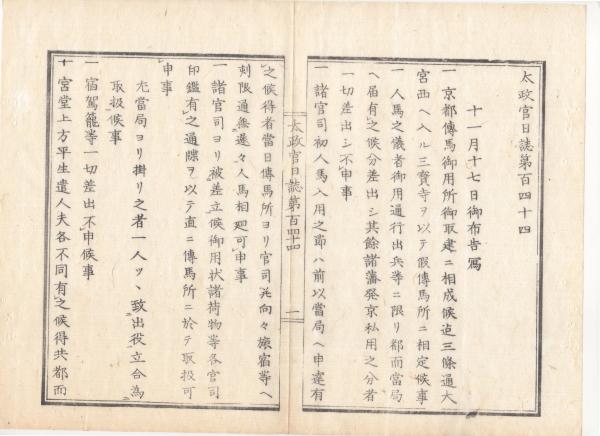 太政官日誌第百四十四
十一月十七日御布告寫
一京都傳馬御用所御取建ニ相成候迠三條通大
宮西ヘ入ル三寳寺ヲ以テ假傳馬所ニ相定候事
一人馬之儀者御用通行出兵等ニ限リ都而當局
ヘ届有之候分差出シ其餘諸藩発京私用之分者
一切差出シ不申事
一諸官司初人馬入用之節ハ前以當局ヘ申達有
太政官日誌第百四十四
一
之候得者當日傳馬所ヨリ官司并向々旅宿等ヘ
刻限通無遅々人馬相廻可申事
一諸官司ヨリ被差立候御用状諸荷物等各官司
印鑑有之通牒ヲ以テ直ニ傳馬所ニ於テ取扱可
申事
尤當局ヨリ掛リ之者一人ツヽ致出役立合為
取扱候事
一宿駕籠等一切差出不申候事
一宮堂上方平生遣人夫各不同有之候得共都而